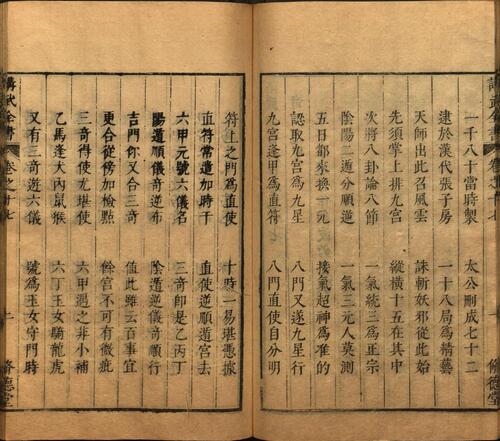 一千八十當時製　太公刪成七十二
逮於漢代張子房　一十八局爲精藝
天師出此召風雲　誅斬妖邪從此始
先須掌上排九宮　縱橫十五在其中
次將八卦論八節　一氣統三爲正宗
陰陽二遁分順逆　一氣三元人莫測
五日都來換一元　接氣超神爲准的
認取九宮爲九星　八門又逐九星行
九宮逢甲爲直符　八門直使自分明
符上之門爲直使　十時一易堪憑據
直符常遣加時干　直使逆順遁宮去
六甲元號六儀名　三奇卽是乙丙丁
陽遁順儀奇逆布　陰遁逆儀奇順行
吉門尓又合三奇　值此雖云百事宜
更合從傍加檢點　餘宮不可有微疵
三奇得使尤堪使　六甲遇之非小補
乙馬逢犬丙鼠猴　六丁玉女騎龍虎
又有三奇遊六儀　號爲玉女守門時
講武全書　卷之廿七　二　脩德堂